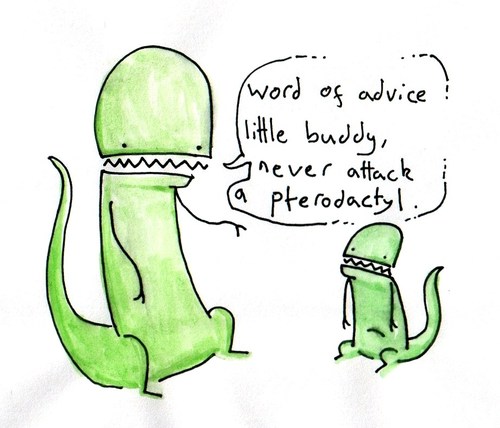 word of advice
little buddy,
never attack
a pterodactyl.